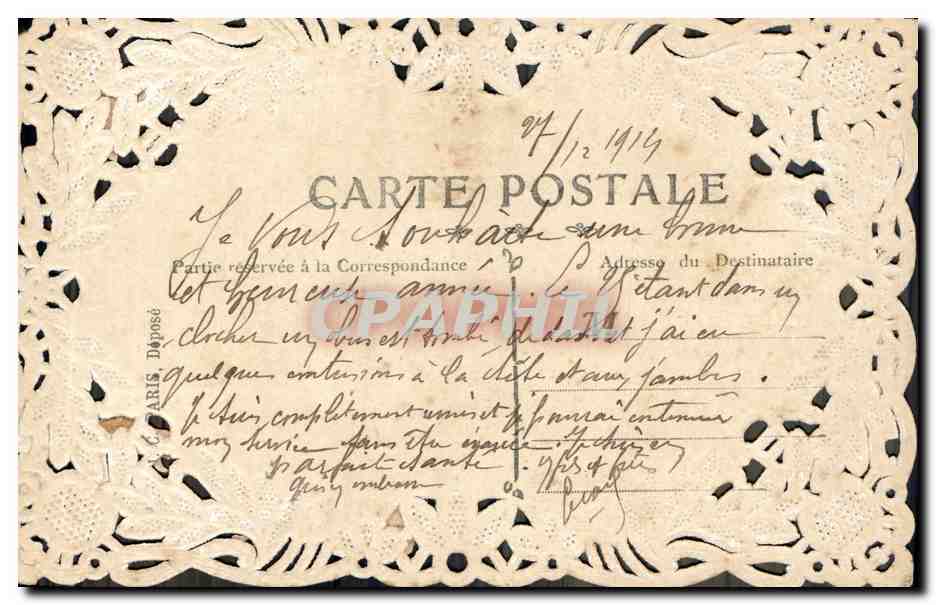 27/12 1914
CARTE POSTALE
Je vous souhaite une bonne
Partie réservée à la Correspondance
Adresse du Destinataire
et heureuse année. Le 25 étant dans un
CPAPHIL
clocher un obus est tombé dedans et j'ai eu
quelques contusions à la tête et aux jambes.
Je suis complètement remis et je pourrai continuer
mon service sans être évacué. Je suis en
parfaite santé.
qui embrasse
PARIS, Déposé